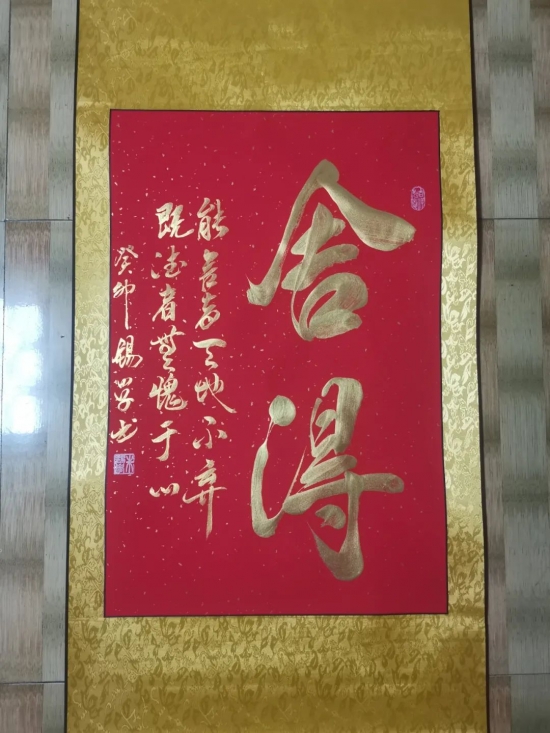 舍得
能舍者天地不弃
既得者无愧于心
癸卯 锡学书